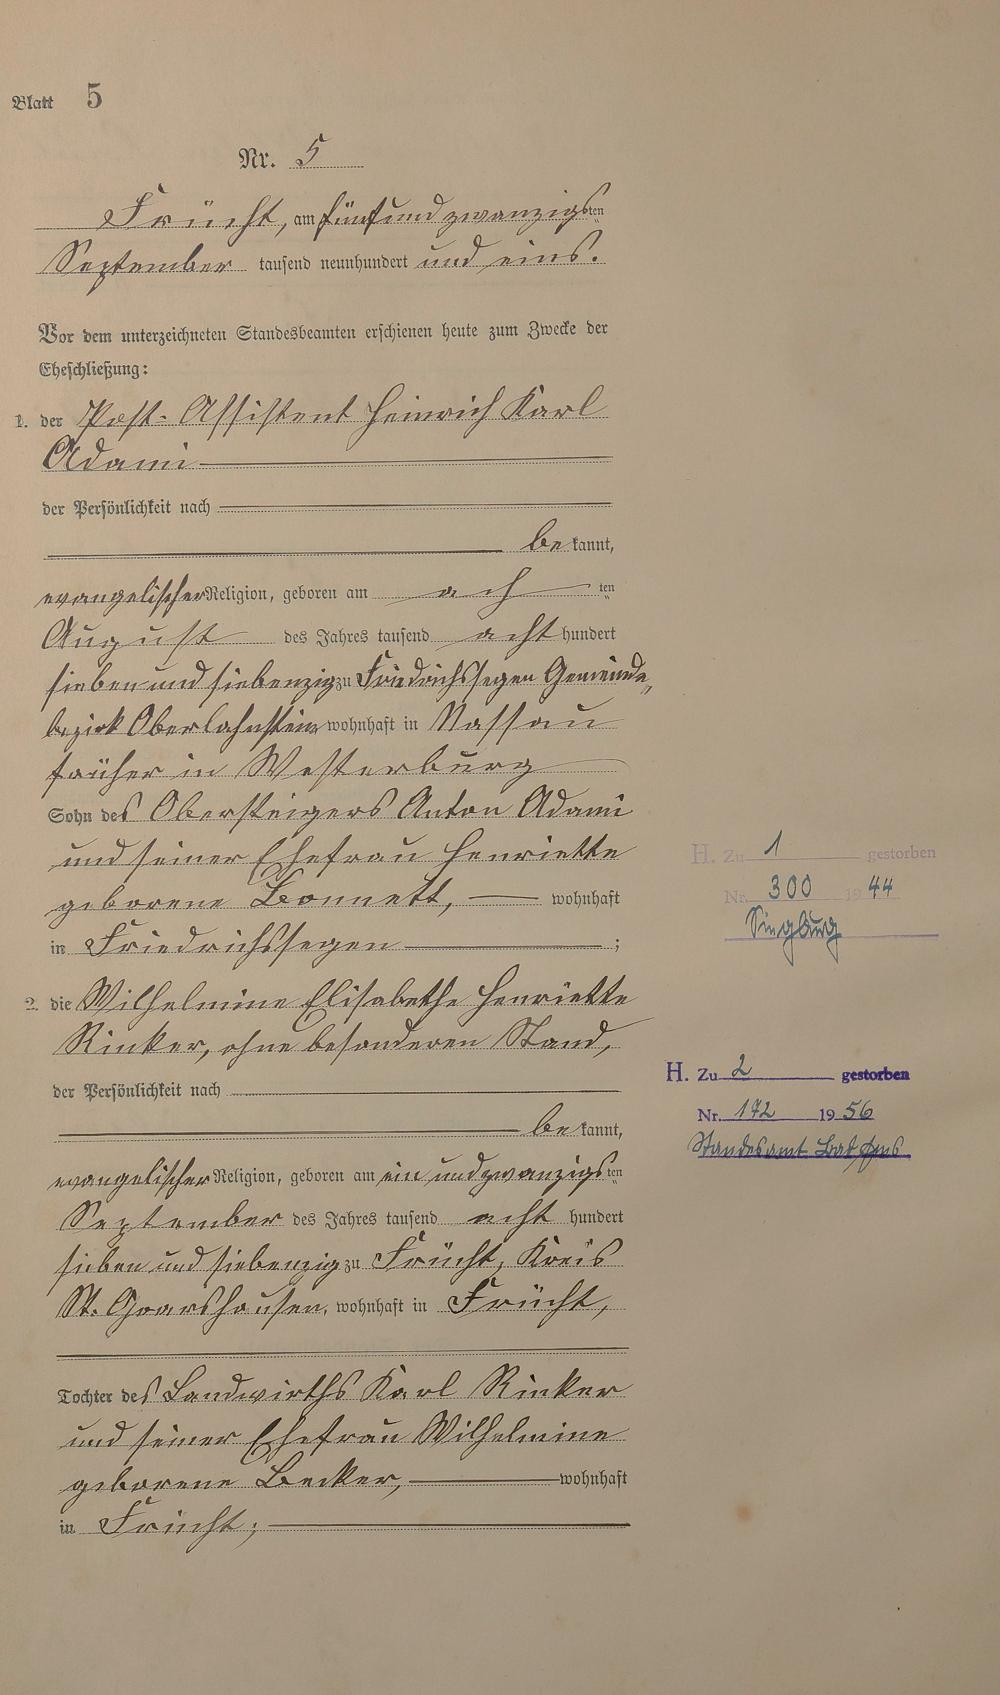 Blatt 5
Nr. 5
Frücht, am fünfundzwanzigsten
September tausend neunhundert und eins.
Vor dem unterzeichneten Standesbeamten erschienen heute zum Zwecke der
Eheschließung:
1. der Post-Assistent Heinrich Karl
Adami
der Persönlichkeit nach
bekannt,
evangelischer Religion, geboren am ach ten
August des Jahres tausend acht hundert
sieben und siebenzig zu Friedrichssegen Gemeinde-
bezirk Oberlahnstein, wohnhaft in Nassau
früher in Westerburg
Sohn des Obersteigers Anton Adami
und seiner Ehefrau Henriette
geborene Bonnett, wohnhaft
in Friedrichssegen ;
2. die Wilhelmine Elisabethe Henriette
Rinker, ohne besonderen Stand,
der Persönlichkeit nach
bekannt,
evangelischer Religion, geboren am ein und zwanzigsten
September des Jahres tausend acht hundert
sieben und siebenzig zu Frücht, Kreis
St. Goarshausen, wohnhaft in Frücht,
Tochter des Landwirths Karl Rinker
und seiner Ehefrau Wilhelmine
geborene Becker, wohnhaft
in Frücht;
H. Zu 1 gestorben
Nr. 300 1944
Siegburg
H. Zu 2 gestorben
Nr. 172 1956
Standesamt Bad Ems